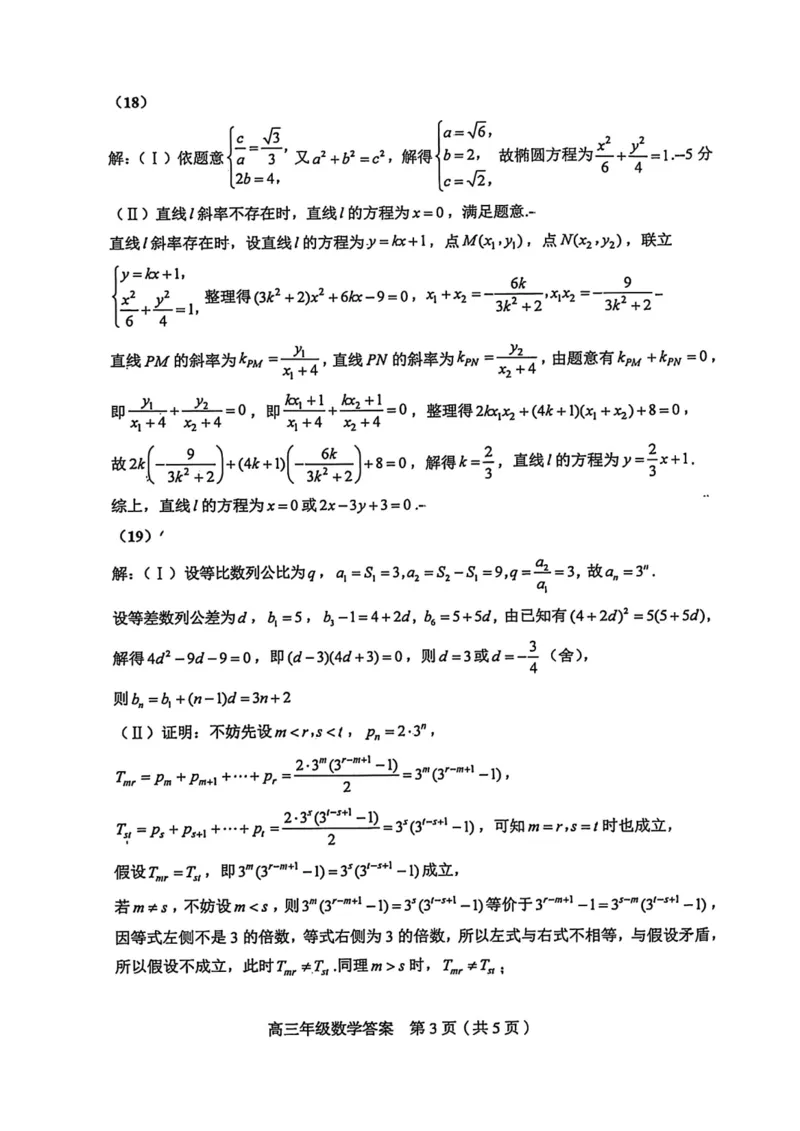 (18)
解:(Ⅰ)依题意{c/a=√3/3, 2b=4, 又a²+b²=c²,解得{a=√6, b=2, c=√2, 故椭圆方程为x²/6+y²/4=1.--5 分
(Ⅱ)直线l斜率不存在时,直线l的方程为x=0,满足题意.--
直线l斜率存在时,设直线l的方程为y=kx+1,点M(x₁,y₁),点N(x₂,y₂),联立
{y=kx+1, x²/6+y²/4=1, 整理得(3k²+2)x²+6kx-9=0,x₁+x₂=-6k/(3k²+2),x₁x₂=-9/(3k²+2)--
直线PM的斜率为k_PM=y₁/(x₁+4),直线PN的斜率为k_PN=y₂/(x₂+4),由题意有k_PM+k_PN=0,
即y₁/(x₁+4)+y₂/(x₂+4)=0,即(kx₁+1)/(x₁+4)+(kx₂+1)/(x₂+4)=0,整理得2kx₁x₂+(4k+1)(x₁+x₂)+8=0,
故2k(-9/(3k²+2))+(4k+1)(-6k/(3k²+2))+8=0,解得k=2/3,直线l的方程为y=2/3x+1.
综上,直线l的方程为x=0或2x-3y+3=0.--
(19)
解:(Ⅰ)设等比数列公比为q,a₁=S₁=3,a₂=S₂-S₁=9,q=a₂/a₁=3,故aₙ=3ⁿ.
设等差数列公差为d,b₁=5,b₃-1=4+2d,b₆=5+5d,由已知有(4+2d)²=5(5+5d),
解得4d²-9d-9=0,即(d-3)(4d+3)=0,则d=3或d=-3/4(舍),
则bₙ=b₁+(n-1)d=3n+2
(Ⅱ)证明:不妨先设m<r,s<t,pₙ=2·3ⁿ,
T_mr=p_m+p_{m+1}+···+p_r=2·3^m(3^{r-m+1}-1)/2=3^m(3^{r-m+1}-1),
T_st=p_s+p_{s+1}+···+p_t=2·3^s(3^{t-s+1}-1)/2=3^s(3^{t-s+1}-1),可知m=r,s=t时也成立,
假设T_mr=T_st,即3^m(3^{r-m+1}-1)=3^s(3^{t-s+1}-1)成立,
若m≠s,不妨设m<s,则3^m(3^{r-m+1}-1)=3^s(3^{t-s+1}-1)等价于3^{r-m+1}-1=3^{s-m}(3^{t-s+1}-1),
因等式左侧不是3的倍数,等式右侧为3的倍数,所以左式与右式不相等,与假设矛盾,
所以假设不成立,此时T_mr≠T_st.同理m>s时,T_mr≠T_st;
高三年级数学答案 第3页(共5页)